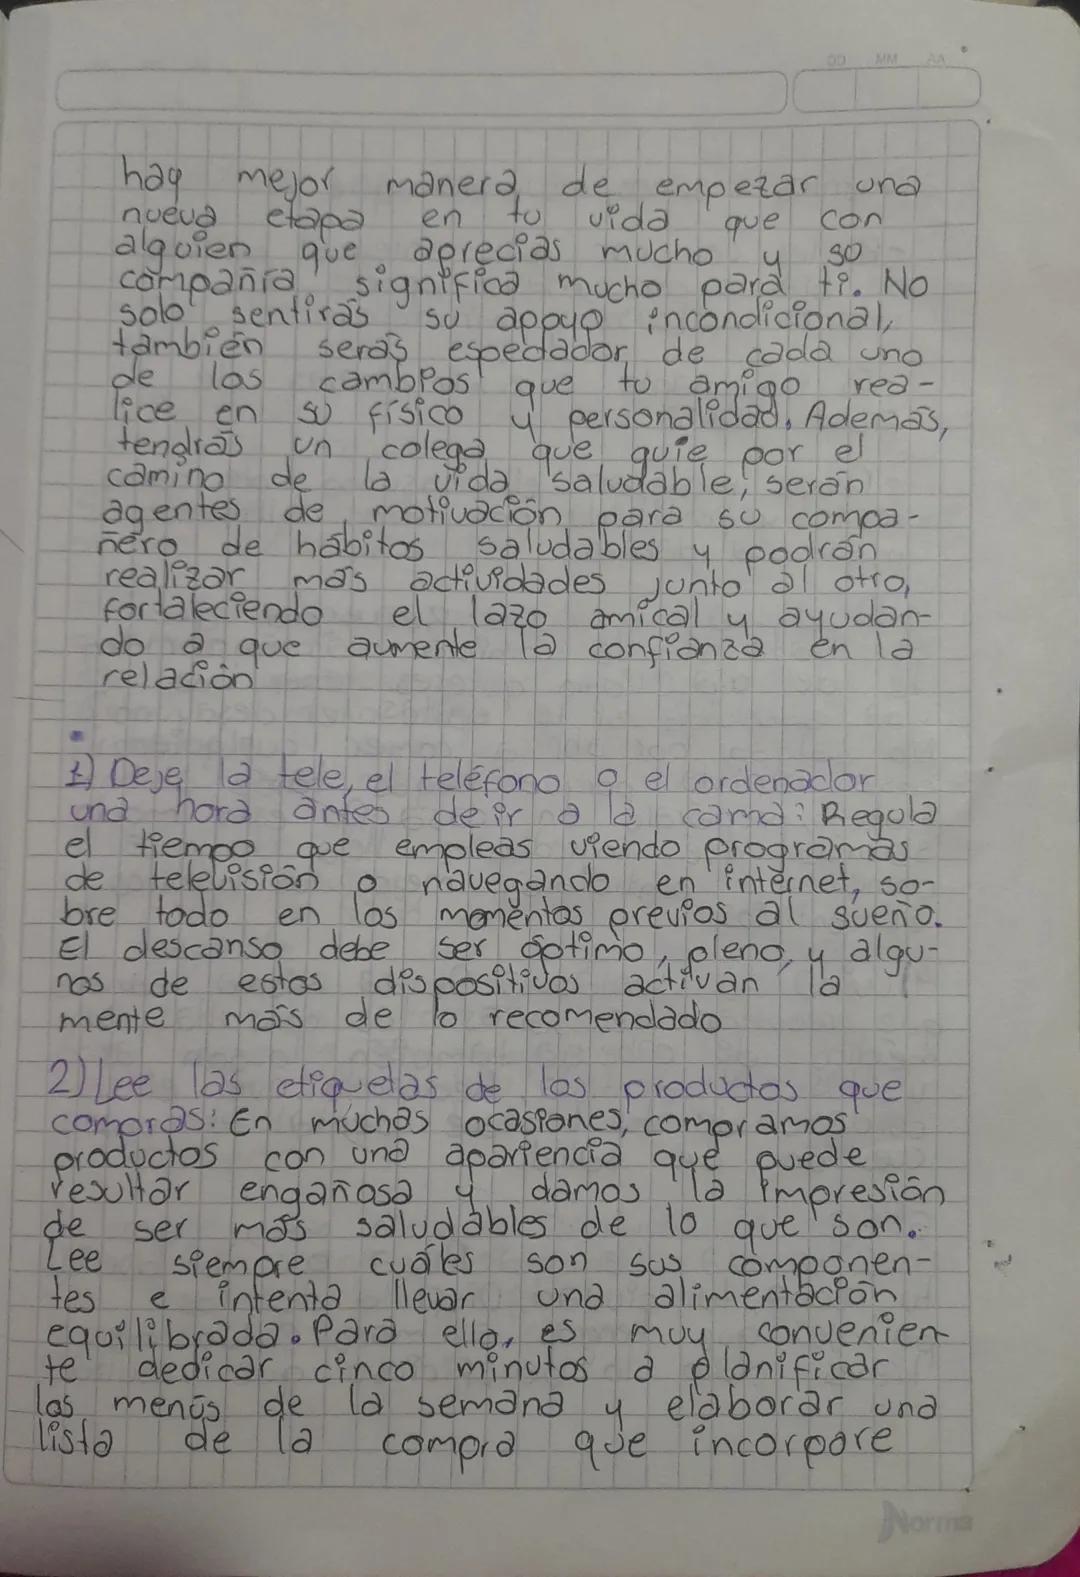 DD MM AA
hay mejor manera de empezar una
nueva etapa en tu vida que con
alguien que aprecias mucho y so
compañia significa mucho para ti. No
solo sentirás su apoyo incondicional,
también serás espedador de cada uno
de los cambios que tu amigo rea-
lice en su físico y personalidad. Además,
tendrás un colega que guie por el
camino de la vida saludable, serán
agentes de motivación para su compa-
ñero de hábitos saludables y podrán
realizar más actividades junto al otro,
fortaleciendo el lazo amical y ayudan-
do a que aumente la confianza en la
relación
1) Deje la tele, el teléfono o el ordenador
una hora antes de ir a la cama: Regula
el tiempo que empleas viendo programas
de televisión o navegando en internet, so-
bre todo en los momentos previos al sueño.
El descanso debe ser óptimo, pleno, y algu-
nos de estos dispositivos activan la
mente más de lo recomendado
2) Lee las etiquetas de los productos que
compras: En muchas ocasiones, compramos
productos con una apariencia que puede
resultar engañosa y damos la impresión
de ser más saludables de lo que son.
Lee siempre cuáles son sus componen-
tes e intenta llevar una alimentación
equilibrada. Para ello, es muy convenien
te dedicar cinco minutos a planificar
los menús de la semana y elaborar una
lista de la compra que incorpore
Norma